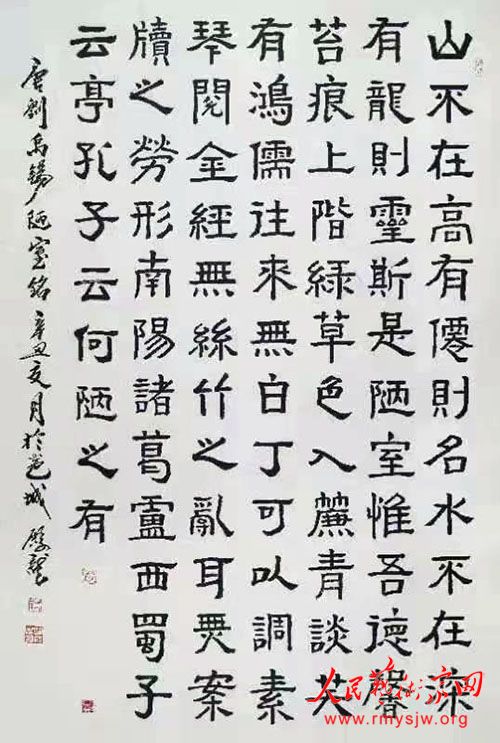 山不在高有僊則名水不在深
有龍則靈斯是陋室惟吾德馨
苔痕上階綠草色入簾青談笑
有鴻儒往來無白丁可以調素
琴閱金經無絲竹之亂耳無案
牘之勞形南陽諸葛盧西蜀子
云亭孔子云何陋之有
唐劉禹錫陋室銘辛丑夏月於邕城
人民藝術家网
www.rmysjw.org